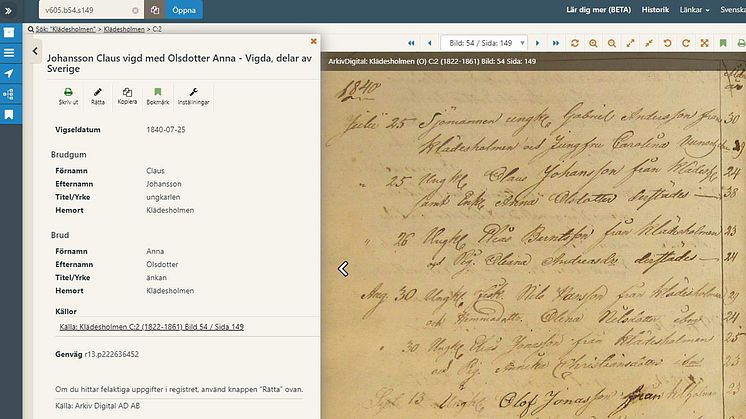 v605.b54.s149
Öppna
Lär dig mer (BETA)
Historik
Länkar
Svenska
Sök: "Klädesholmen" > Klädesholmen > C:2
Johansson Claus vigd med Olsdotter Anna - Vigda, delar av
Sverige
Skriv ut
Rätta
Kopiera
Bokmärk
Inställningar
Vigseldatum 1840-07-25
Brudgum
Förnamn Claus
Efternamn Johansson
Titel/Yrke ungkarlen
Hemort Klädesholmen
Brud
Förnamn Anna
Efternamn Olsdotter
Titel/Yrke änkan
Hemort Klädesholmen
Källor
Källa: Klädesholmen C:2 (1822-1861) Bild 54 / Sida 149
Genväg r13.p222636452
Om du hittar felaktiga uppgifter i registret, använd knappen "Rätta" ovan.
Källa: Arkiv Digital AD AB
Bild: 54 / Sida: 149
ArkivDigital: Klädesholmen (O) C:2 (1822-1861) Bild 54 Sida: 149
1840
Julii 25 Sjömannen ungk. Gabriel Andersson från 30
Klädesholmen och Jungfru Carolina
" 25 Ungk. Claus Johansson från Klädesh. 24
samt Enk. Anna Olsdotter derstädes 38
" 26 Ungk. Elias Berntsson från Klädesholmen 23
och Pig. Oleana Andreasdr derstädes 24
Aug. 30 Ungk. fisk. Nils Hansson från Klädesholmen 21
och Hemmadott. Olena Nilsdotter 24
" 30 Ungk. Elias Jonasson från Klädesholmen 25
och Pig. Annika Christiansdotter 23
Sept 13 Ungk. Olof Jonasson från Klädesholmen